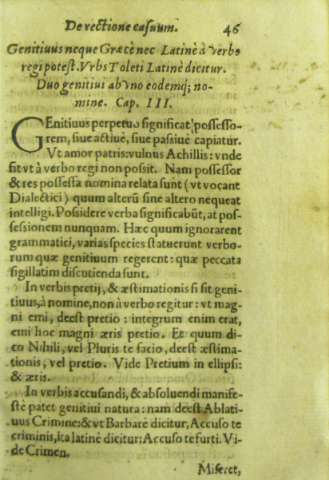 De rectione casuum. 46
Genitiuus neque Græcè nec Latinè à verbo
regi potest. Vrbs Toleti Latinè dicitur.
Duo genitiui ab vno eodemq; no-
mine. Cap. III.
GEnitiuus perpetuo significat possesso-
rem, siue actiuè, siue passiuè capiatur.
Vt amor patris: vulnus Achillis: vnde
fit vt à verbo regi non possit. Nam possessor
& res possessa nomina relata sunt (vt vocant
Dialectici) quum alterũ sine altero nequeat
intelligi. Possidere verba significabũt, at pos-
sessionem nunquam. Hæc quum ignorarent
grammatici, varias species statuerunt verbo-
rum quæ genitiuum regerent: quæ peccata
sigillatim discutienda sunt.
In verbis pretij, & æstimationis si sit geni-
tiuus, à nomine, non à verbo regitur: vt mag-
ni emi, deest pretio: integrum enim erat,
emi hoc magni æris pretio. Et quum di-
co Nihili, vel Pluris te facio, deest æstima-
tionis, vel pretio. Vide Pretium in ellipsi:
& æris.
In verbis accusandi, & absoluendi manife-
ste patet genitiui natura: nam deest Ablati-
uus Crimine: & vt Barbarè dicitur, Accuso te
criminis, ita latinè dicitur: Accuso te furti. Vi-
de Crimen.
Miseret,